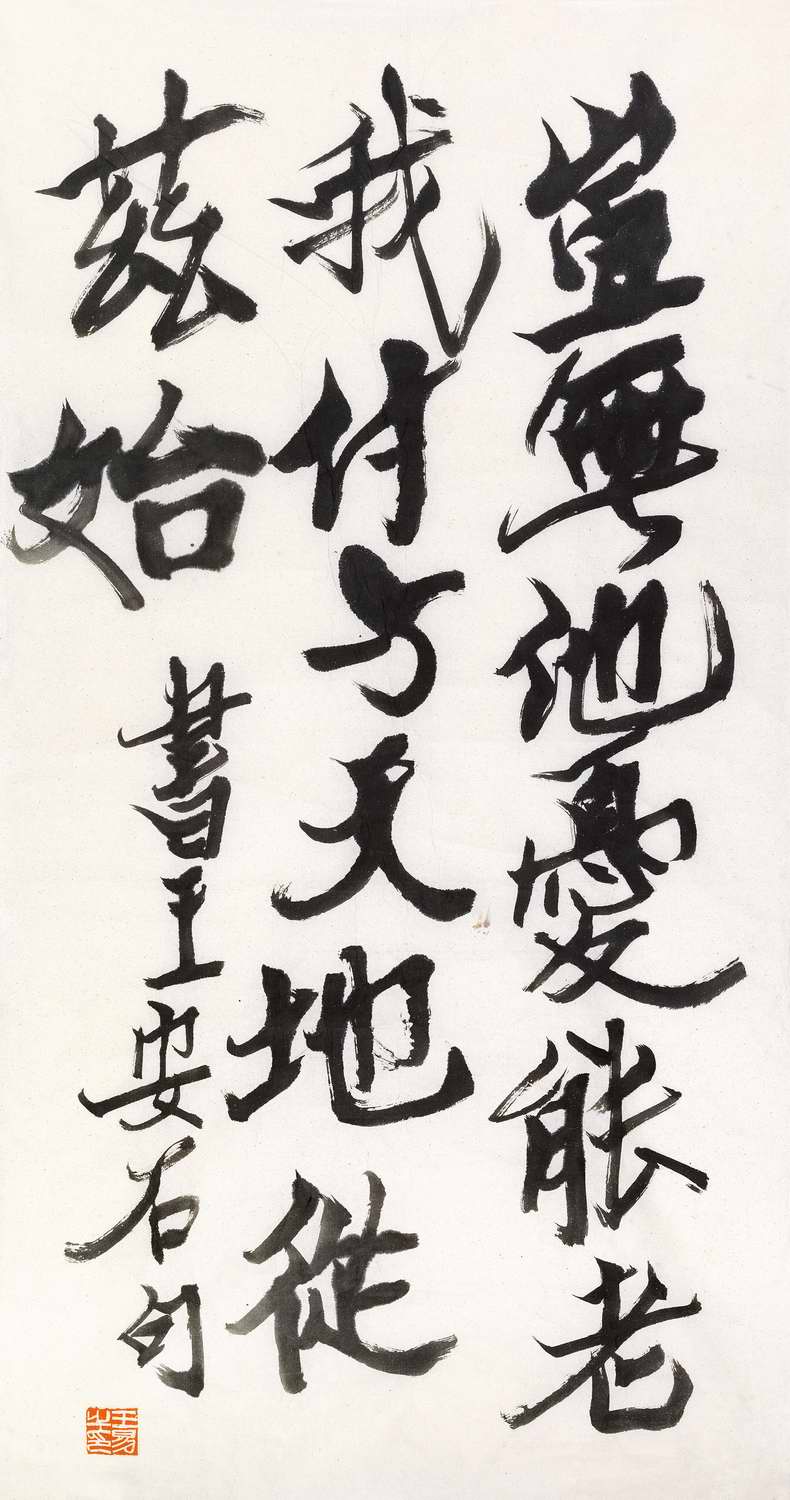 豈無他憂能老
我付与天地從
茲始 書王安石句